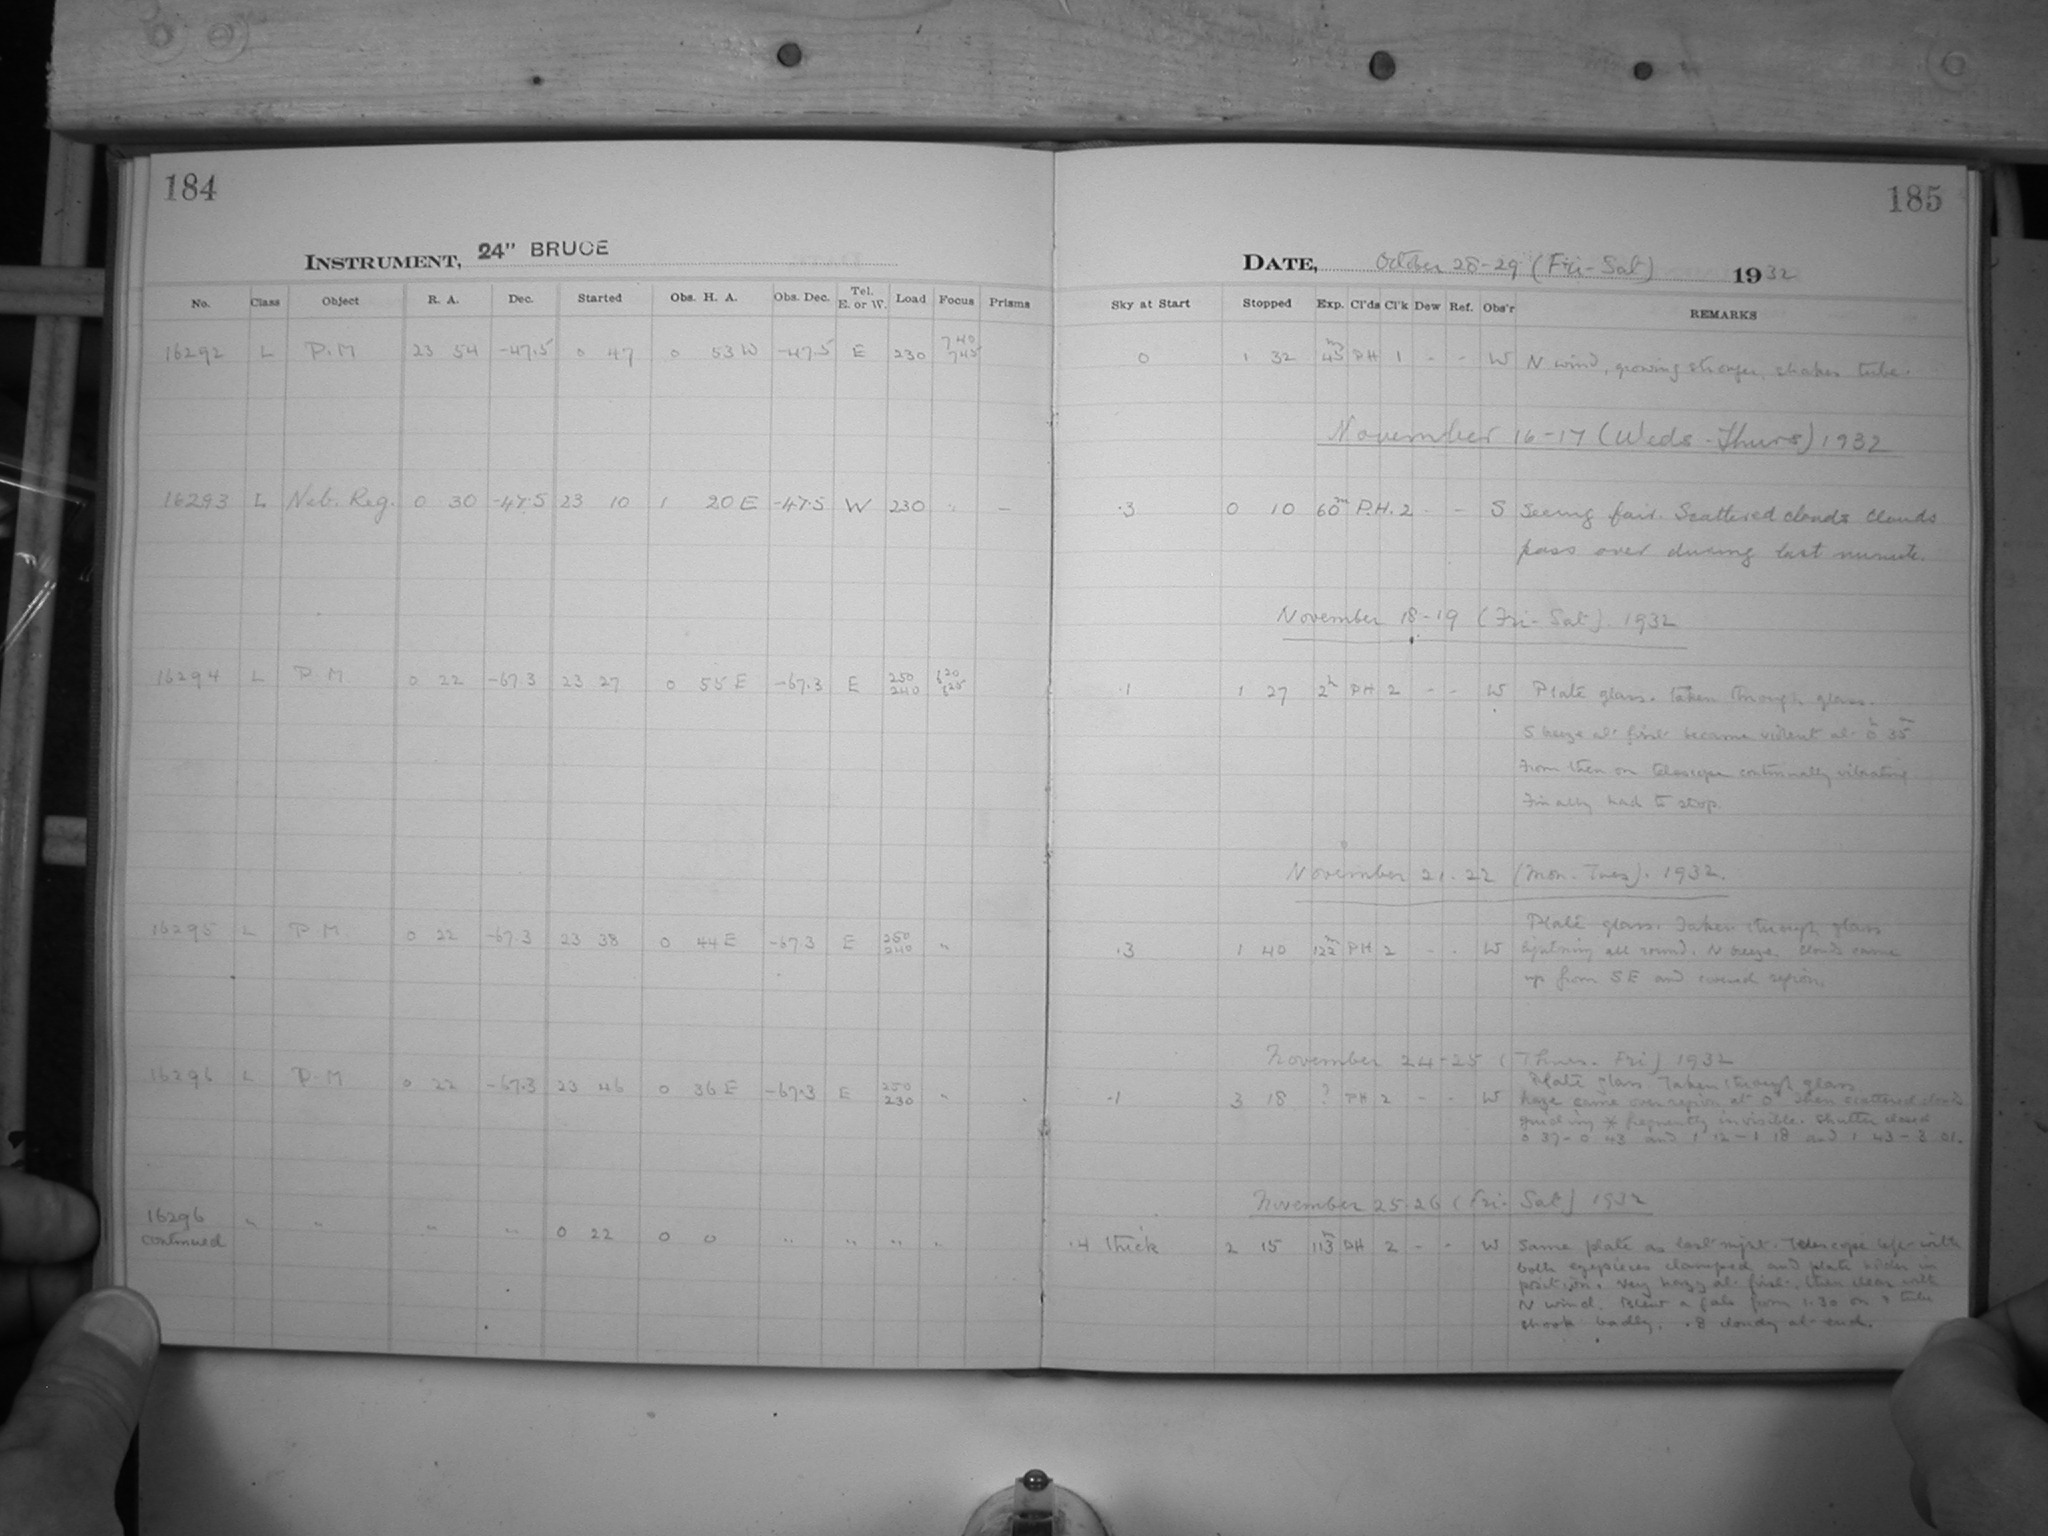 184
INSTRUMENT, 24" BRUCE
No. Class Object R. A. Dec. Started Obs. H. A. Obs. Dec. Tel. E. or W. Load Focus Prisms
16292 L P.M 23 54 -47.5 0 47 0 53 W -47.5 E 230 740 745
16293 L Neb. Reg. 0 30 -47.5 23 10 1 20 E -47.5 W 230 " –
16294 L P M 0 22 -67.3 23 27 0 55 E -67.3 E 250 240
16295 L P M. 0 22 -67.3 23 38 0 44 E -67.3 E 250 240 "
16296 L P.M 0 22 -67.3 23 46 0 36 E -67.3 E 250 230 "
16296 continued " " " " 0 22 0 0 " " " "
185
DATE, October 28-29 (Fri-Sat) 1932
Sky at Start Stopped Exp. Cl'ds Cl'k Dew Ref. Obs'r REMARKS
0 1 32 45m PH 1 - - W N wind, growing stronger, shakes tube.
November 16-17 (Weds-Thurs) 1932
.3 0 10 60m P.H. 2 - - S Seeing fair. Scattered clouds clouds
pass over during last minute.
November 18-19 (Fri-Sat). 1932
.1 1 27 2h PH 2 - - W Plate glass. Taken through glass.
S breeze at first became violent at 0h 35m
From then on telescope continually vibrating
Finally had to stop.
November 21-22 (Mon-Tues). 1932.
Plate glass. Taken through glass
.3 1 40 122m PH 2 - - W lightning all round. N breeze. Clouds came
up from SE and covered region.
November 24-25 (Thurs-Fri) 1932
Plate glass. Taken through glass
.1 3 18 ? PH 2 - - W haze came over region at 0h then scattered clouds
guiding * frequently invisible. Shutter closed
0 37-0 43 and 1 12-1 18 and 1 43-3 01.
November 25-26 (Fri-Sat) 1932
.4 thick 2 15 113m PH 2 - - W Same plate as last night. Telescope left with
both eyepieces clamped and plate holder in
position. Very hazy at first, then clear with
N wind. Blew a gale from 1.30 on & tube
shook badly. .8 cloudy at end.